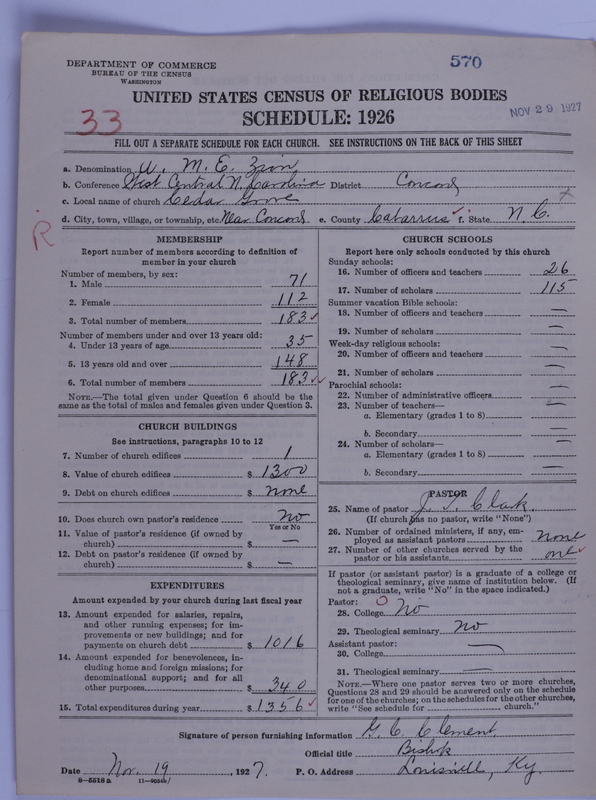 DEPARTMENT OF COMMERCE
BUREAU OF THE CENSUS
WASHINGTON
570
UNITED STATES CENSUS OF RELIGIOUS BODIES
SCHEDULE: 1926
NOV 29 1927
33
FILL OUT A SEPARATE SCHEDULE FOR EACH CHURCH. SEE INSTRUCTIONS ON THE BACK OF THIS SHEET
a. Denomination A. M. E. Zion
b. Conference West Central N. Carolina District Concord
c. Local name of church Cedar Grove
d. City, town, village, or township, etc. Near Concord e. County Cabarrus f. State N. C.
R
MEMBERSHIP
Report number of members according to definition of
member in your church
Number of members, by sex:
1. Male 71
2. Female 112
3. Total number of members 183
Number of members under and over 13 years old:
4. Under 13 years of age 35
5. 13 years old and over 148
6. Total number of members 183
NOTE.—The total given under Question 6 should be
same as the total of males and females given under Question 3.
CHURCH BUILDINGS
See instructions, paragraphs 10 to 12
7. Number of church edifices 1
8. Value of church edifices $ 1300
9. Debt on church edifices $ none
10. Does church own pastor's residence No
Yes or No
11. Value of pastor's residence (if owned by
church) $ —
12. Debt on pastor's residence (if owned by
church) $ —
EXPENDITURES
Amount expended by your church during last fiscal year
13. Amount expended for salaries, repairs,
and other running expenses; for im-
provements or new buildings; and for
payments on church debt $ 1016
14. Amount expended for benevolences, in-
cluding home and foreign missions; for
denominational support; and for all
other purposes $ 340
15. Total expenditures during year $ 1356
CHURCH SCHOOLS
Report here only schools conducted by this church
Sunday schools:
16. Number of officers and teachers 26
17. Number of scholars 115
Summer vacation Bible schools:
18. Number of officers and teachers —
19. Number of scholars —
Week-day religious schools:
20. Number of officers and teachers —
21. Number of scholars —
Parochial schools:
22. Number of administrative officers —
23. Number of teachers—
a. Elementary (grades 1 to 8) —
b. Secondary —
24. Number of scholars—
a. Elementary (grades 1 to 8) —
b. Secondary —
PASTOR
25. Name of pastor J. T. Clark.
(If church has no pastor, write "None")
26. Number of ordained ministers, if any, em-
ployed as assistant pastors none
27. Number of other churches served by the
pastor or his assistants one
If pastor (or assistant pastor) is a graduate of a college or
theological seminary, give name of institution below. (If
not a graduate, write "No" in the space indicated.)
Pastor: O
28. College No
29. Theological seminary No
Assistant pastor:
30. College —
31. Theological seminary —
NOTE.—Where one pastor serves two or more churches,
Questions 28 and 29 should be answered only on the schedule
for one of the churches; on the schedules for the other churches,
write "See schedule for church."
Signature of person furnishing information G. C. Clement
Official title Bishop
Date Nov. 19, 1927. P. O. Address Louisville, Ky.
8—5518a 11—9054